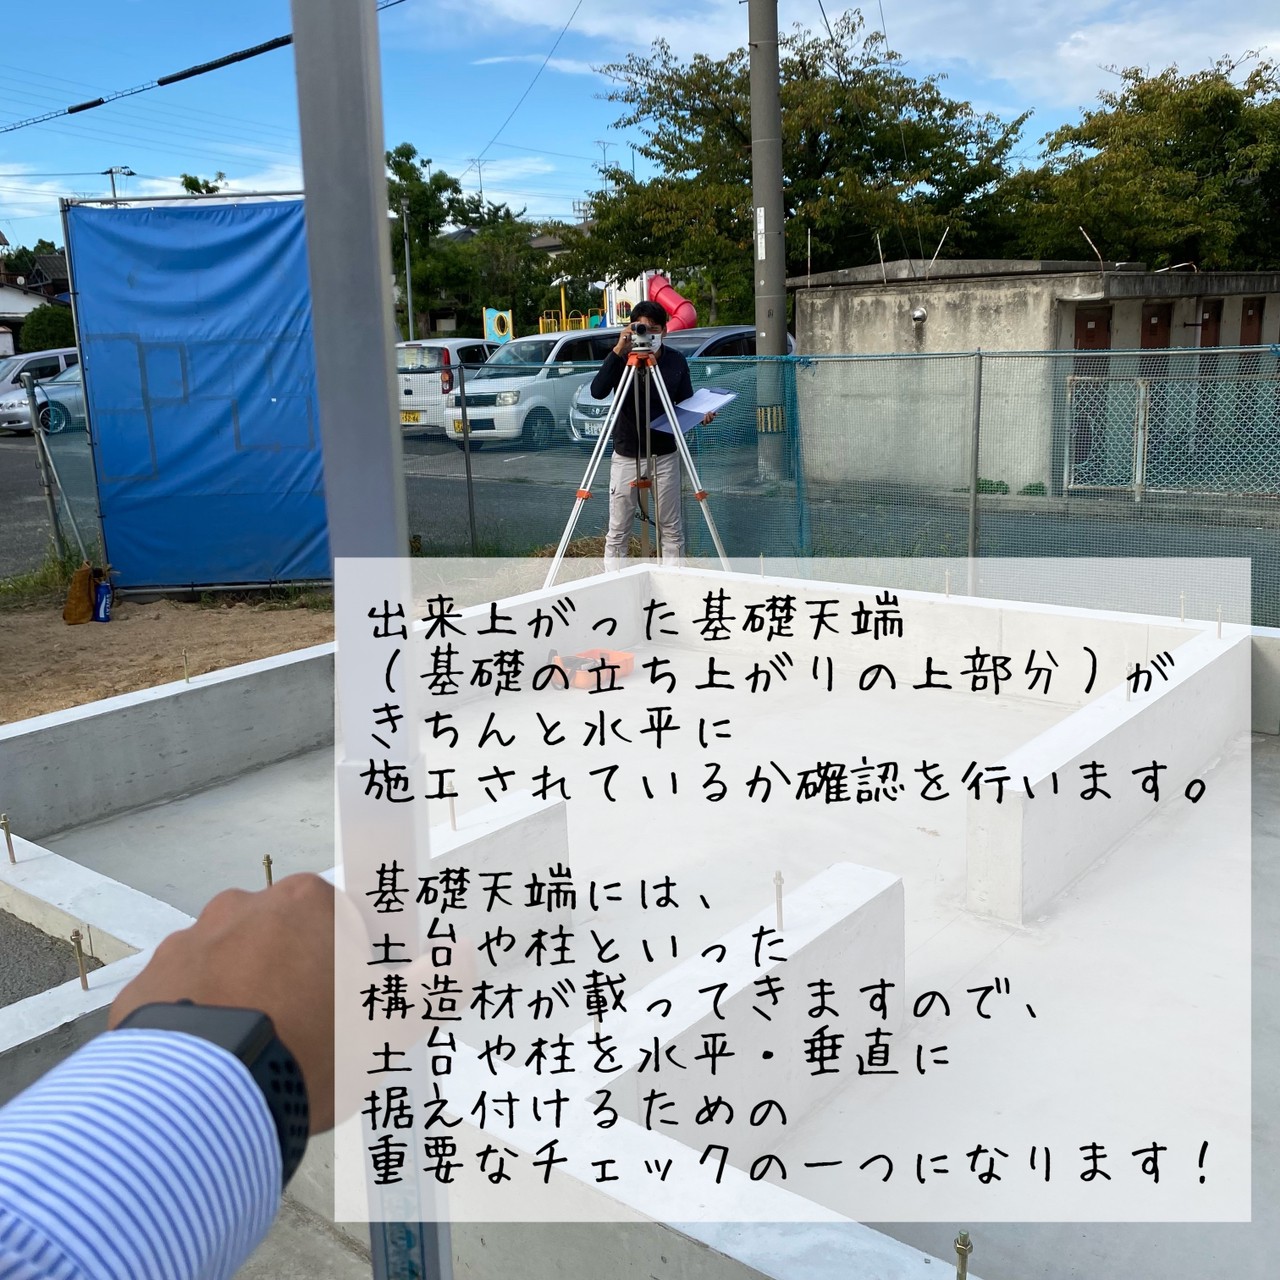 出来上がった基礎天端
（基礎の立ち上がりの上部分）が
きちんと水平に
施工されているか確認を行います。
基礎天端には、
土台や柱といった
構造材が載ってきますので、
土台や柱を水平・垂直に
据え付けるための
重要なチェックの一つになります！